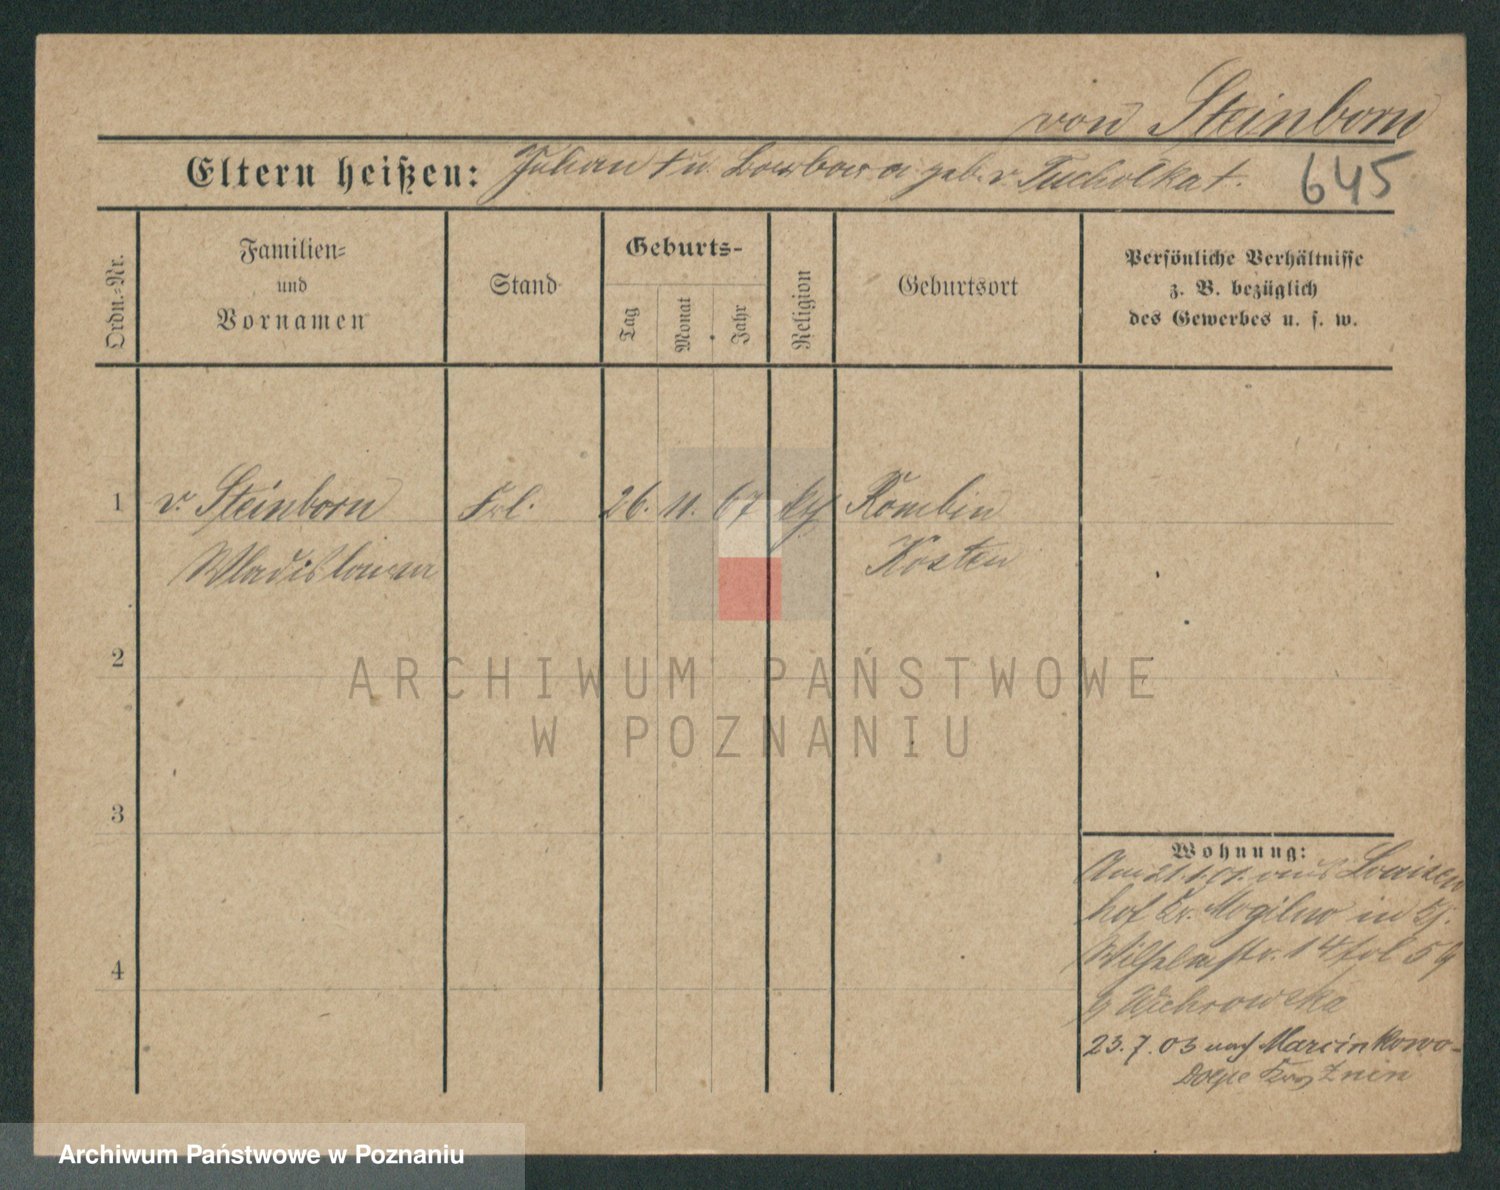 von Steinborn
Eltern heißen: Julian † u. Barbara geb. v. Tucholka †.
645
Ordn.-Nr.
Familien-
und
Vornamen
Stand
Geburts-
Tag
Monat
Jahr
Religion
Geburtsort
Persönliche Verhältnisse
z. B. bezüglich
des Gewerbes u. s. w.
1 v. Steinborn Frl. 26. 11. 67 kth Rombin
Wladislawa Kosten
2
3
4
Wohnung:
Am 21.1.01. aus Waisen
hof Kr. Mogilno in
Wilhelmstr. 14 fol 59
23.7.03 nach Marcinkowo-
Dolne Krs Znin
ARCHIWUM PAŃSTWOWE
W POZNANIU
Archiwum Państwowe w Poznaniu